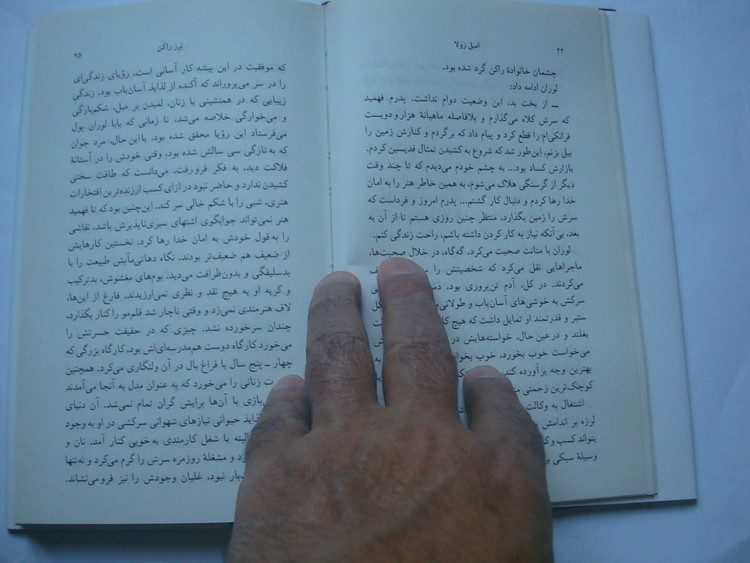 ۴۴ امیل زولا
چشمان خانوادهٔ راکن گرد شده بود.
لوران ادامه داد:
ـــ از بخت بد، این وضعیت دوام نداشت. پدرم فهمید
که سرش کلاه می‌گذارم و بلافاصله ماهیانهٔ هزار و دویست
فرانکی‌ام را قطع کرد و پیام داد که برگردم و کنارش زمین را
بیل بزنم. این‌طور شد که شروع به کشیدن تمثال قدیسین کردم.
بازارش کساد بود... به چشم خودم می‌دیدم که تا چند وقت
دیگر از گرسنگی هلاک می‌شوم، به همین خاطر هنر را به امان
خدا رها کردم و دنبال کار گشتم... پدرم امروز و فرداست که
سرش را زمین بگذارد، منتظر چنین روزی هستم تا از آن به
بعد، بی‌آنکه نیاز به کار کردن داشته باشم، راحت زندگی کنم.
لوران با متانت صحبت می‌کرد. گه‌گاه، در خلال صحبت‌ها،
ماجراهایی نقل می‌کرد که شخصیتش را
می‌کردند. در کل، آدم تن‌پروری بود،
سرکش به خوشی‌های آسان‌یاب و طولانی
ستبر و قدرتمند او تمایل داشت که هیچ
بغلتد و در عین حال، خواسته‌هایش در
می‌خواست خوب بخورد، خوب بخوابد
بهترین وجه برآورده کند
کوچک‌ترین زحمتی
اشتغال به وکالت
لرزه بر اندامش
بتواند کسب و
وسیلهٔ سبکی
ترز راکن ۴۵
که موفقیت در این پیشه کار آسانی است. رؤیای زندگی‌ای
را در سر می‌پروراند که آکنده از لذایذ آسان‌یاب بود، زندگی
زیبایی که در همنشینی با زنان، لمیدن بر مبل، شکم‌بارگی
و می‌خوارگی خلاصه می‌شد. تا زمانی که بابا لوران پول
می‌فرستاد این رؤیا محقق شده بود. با این‌حال، مرد جوان
که به‌تازگی سی سالش شده بود، وقتی خودش را در آستانهٔ
فلاکت دید، به فکر فرو رفت. می‌دانست که طاقت سختی
کشیدن ندارد و حاضر نبود در ازای کسب ارزنده‌ترین افتخارات
هنری، شبی را با شکم خالی سر کند. این‌چنین بود که تا فهمید
هنر نمی‌تواند جوابگوی اشتهای سیری‌ناپذیرش باشد، نقاشی
را به‌قول خودش به امان خدا رها کرد. نخستین کارهایش
از ضعیف هم ضعیف‌تر بودند. نگاه دهاتی‌مآبش طبیعت را با
بدسلیقگی و بدون‌ظرافت می‌دید. بوم‌های مغشوش، بدترکیب
و کریه او به هیچ نقد و نظری نمی‌ارزیدند. فارغ از این‌ها،
لاف هنرمندی نمی‌زد و وقتی ناچار شد قلم‌مو را کنار بگذارد،
چندان سرخورده نشد. چیزی که در حقیقت حسرتش را
می‌خورد کارگاه دوست هم‌مدرسه‌ای‌اش بود، کارگاه بزرگی که
چهار ـ پنج سال با فراغ بال در آن ولنگاری می‌کرد. همچنین
زنانی را می‌خورد که به عنوان مدل به آنجا می‌آمدند
بازی با آن‌ها برایش گران تمام نمی‌شد. آن دنیای
لذایذ حیوانی نیازهای شهوانی سرکشی در او به وجود
البته با شغل کارمندی به‌خوبی کنار آمد. نان و
و مشغلهٔ روزمره سرش را گرم می‌کرد و نه‌تنها
نبود، غلیان وجودش را نیز فرو می‌نشاند.